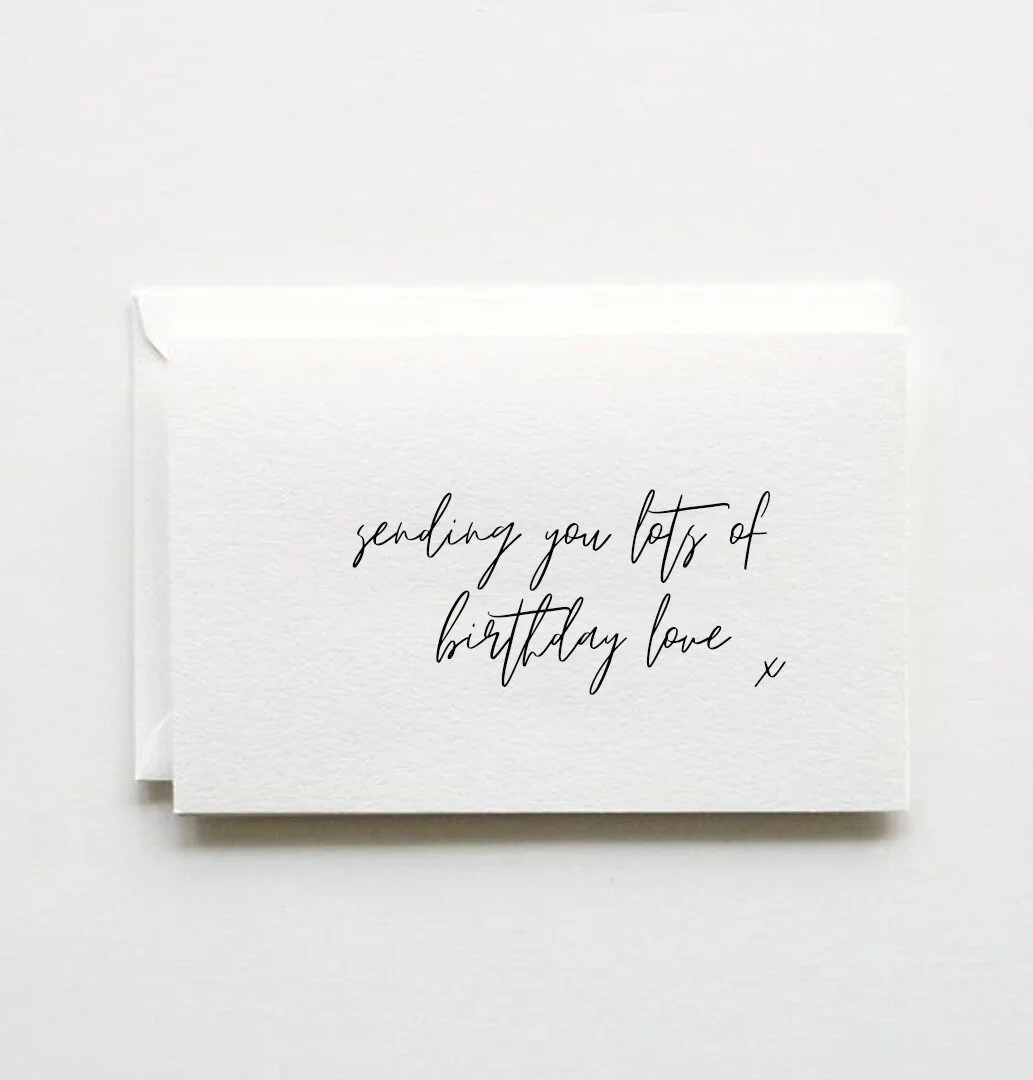 sending you lots of
birthday love
x